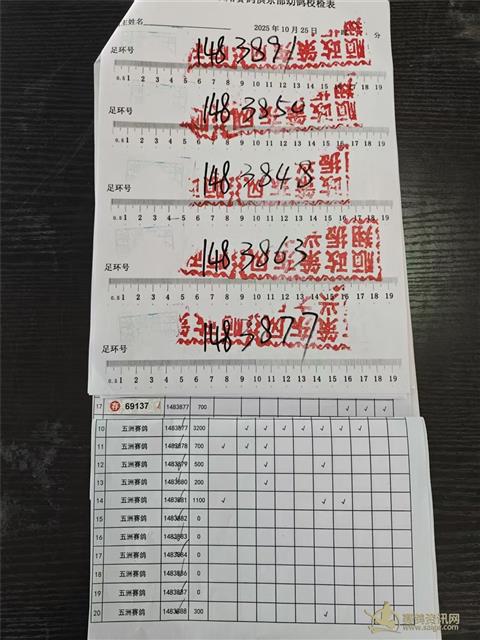 俱乐部幼鸽校检表
主姓名
2025年10月25日
分
1483891
足环号
0.5 1 2 3 4 5 6 7 8 9 10 11 12 13 14 15 16 17 18 19
足环号
0.5 1 2 3 4 5 6 7 8 9 10 11 12 13 14 15 16 17 18 19
1483848
足环号
0.5 1 2 3 4 5 6 7 8 9 10 11 12 13 14 15 16 17 18 19
1483863
足环号
0.5 1 2 3 4 5 6 7 8 9 10 11 12 13 14 15 16 17 18 19
1483877
足环号
0.5 1 2 3 4 5 6 7 8 9 10 11 12 13 14 15 16 17 18 19
17 荐 69137 1483877 700 √ √ √
10 五洲赛鸽 1483877 3200 √ √ √ √ √ √ √
11 五洲赛鸽 1483878 700 √ √ √
12 五洲赛鸽 1483879 500 √ √
13 五洲赛鸽 1483880 200 √
14 五洲赛鸽 1483881 1100 √ √ √ √
15 五洲赛鸽 1483882 0
16 五洲赛鸽 1483883 0
17 五洲赛鸽 1483884 0
18 五洲赛鸽 1483886 0
19 五洲赛鸽 1483887 0
20 五洲赛鸽 1483888 300 √